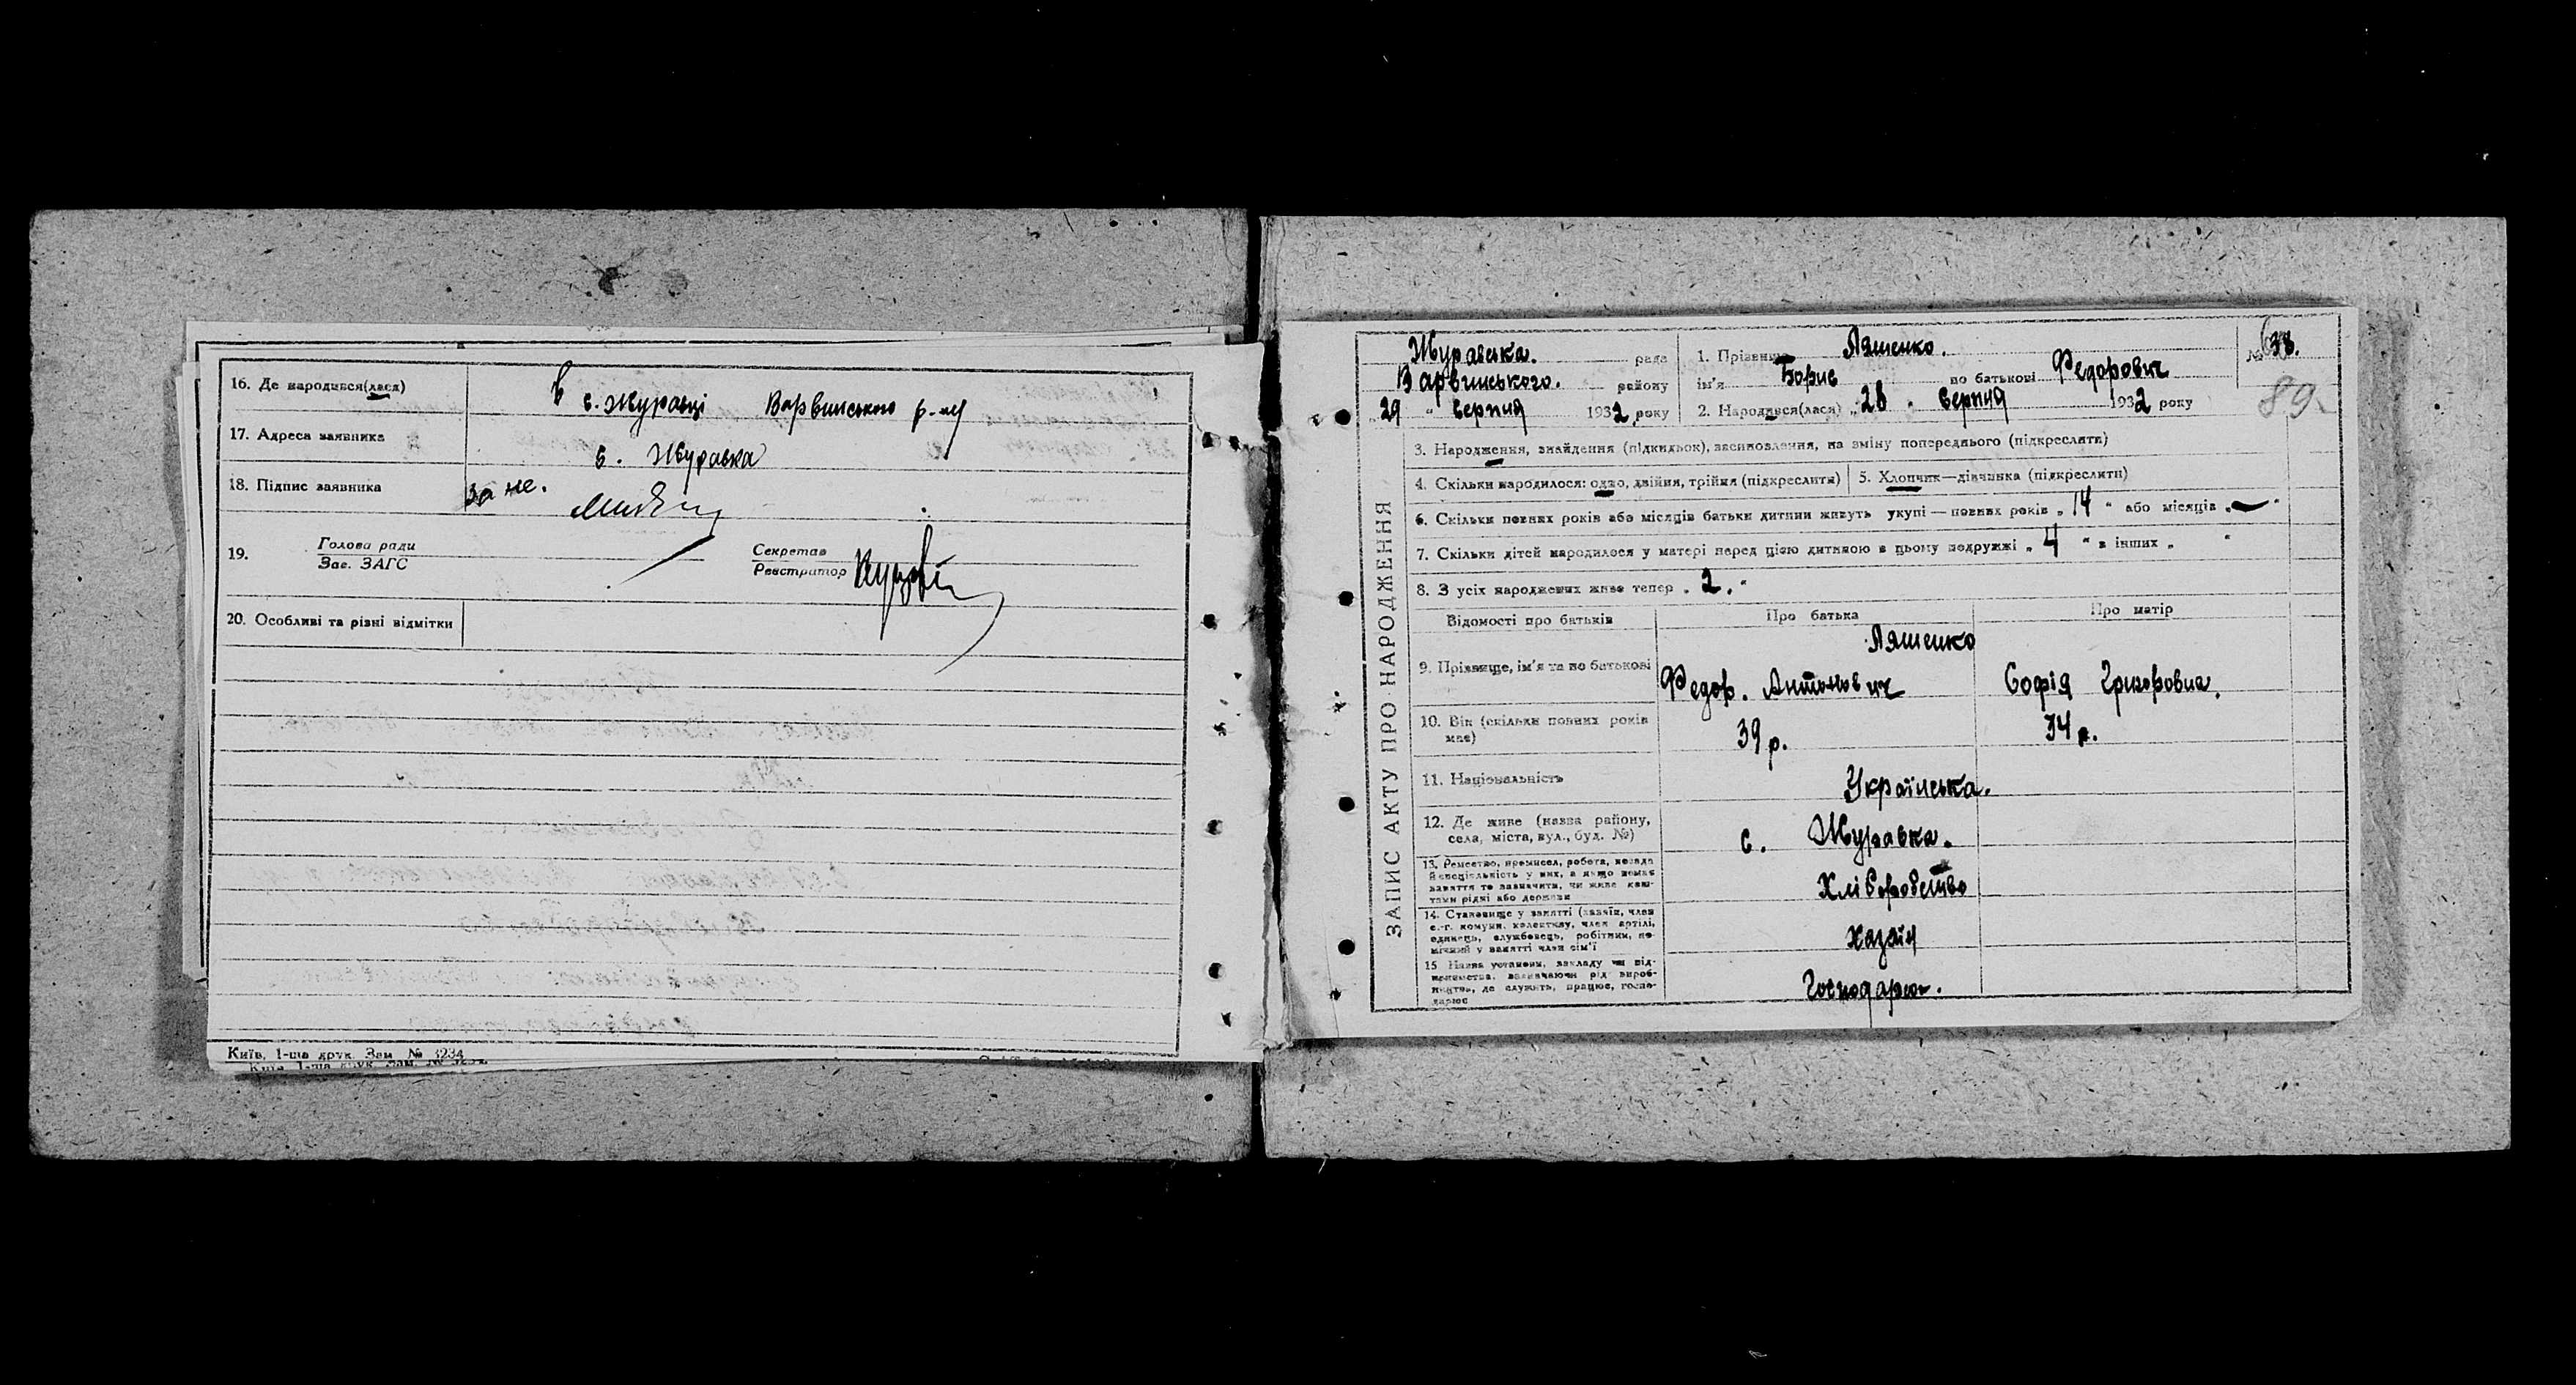 16. Де народився(лася)
в с. Журавці Варвинського р-ну
17. Адреса заявника
с. Журавка
18. Підпис заявника
за не.
19.
Голова ради
Зав. ЗАГС
Секретар
Реєстратор
20. Особливі та різні відмітки
Київ, 1-ша друк. Зам. № 3234
ЗАПИС АКТУ ПРО НАРОДЖЕННЯ
Журавська. рада
Варвинського. району
„29 " серпня 1932 року
1. Прізвище Ляшенко.
ім'я Борис по батькові Федорович
2. Народився(лася) „28 " серпня 1932 року
№ 38.
89
3. Народження, знайдення (підкидьок), всиновлення, на зміну попереднього (підкреслити)
4. Скільки народилося: одно, двійня, трійня (підкреслити)
5. Хлопчик—дівчинка (підкреслити)
6. Скільки повних років або місяців батьки дитини живуть укупі — повних років „ 14 " або місяців „ — "
7. Скільки дітей народилося у матері перед цією дитиною в цьому подружжі „ 4 " в інших „ "
8. З усіх народжених живе тепер „ 2. "
Відомості про батьків
Про батька
Про матір
9. Прізвище, ім'я та по батькові
Ляшенко
Федор. Антонович
Софія Григоровна.
10. Вік (скільки повних років
має)
39 р.
34 р.
11. Національність
Українська.
12. Де живе (назва району,
села, міста, вул., буд. №)
с. Журавка.
13. Ремество, промисел, робота, посада
й спеціяльність у них, а якщо немає
заняття то зазначити, чи живе кош-
тами рідні або держави
Хліборобство
14. Становище у занятті (хазяїн, член
с.-г. комуни, колективу, член артілі,
одинець, службовець, робітник, по-
мічний у занятті член сім'ї
Хазяїн
15 Назва установи, закладу чи під-
приємства, зазначаючи рід вироб-
ництва, де служить, працює, госпо-
дарює
Господарює.